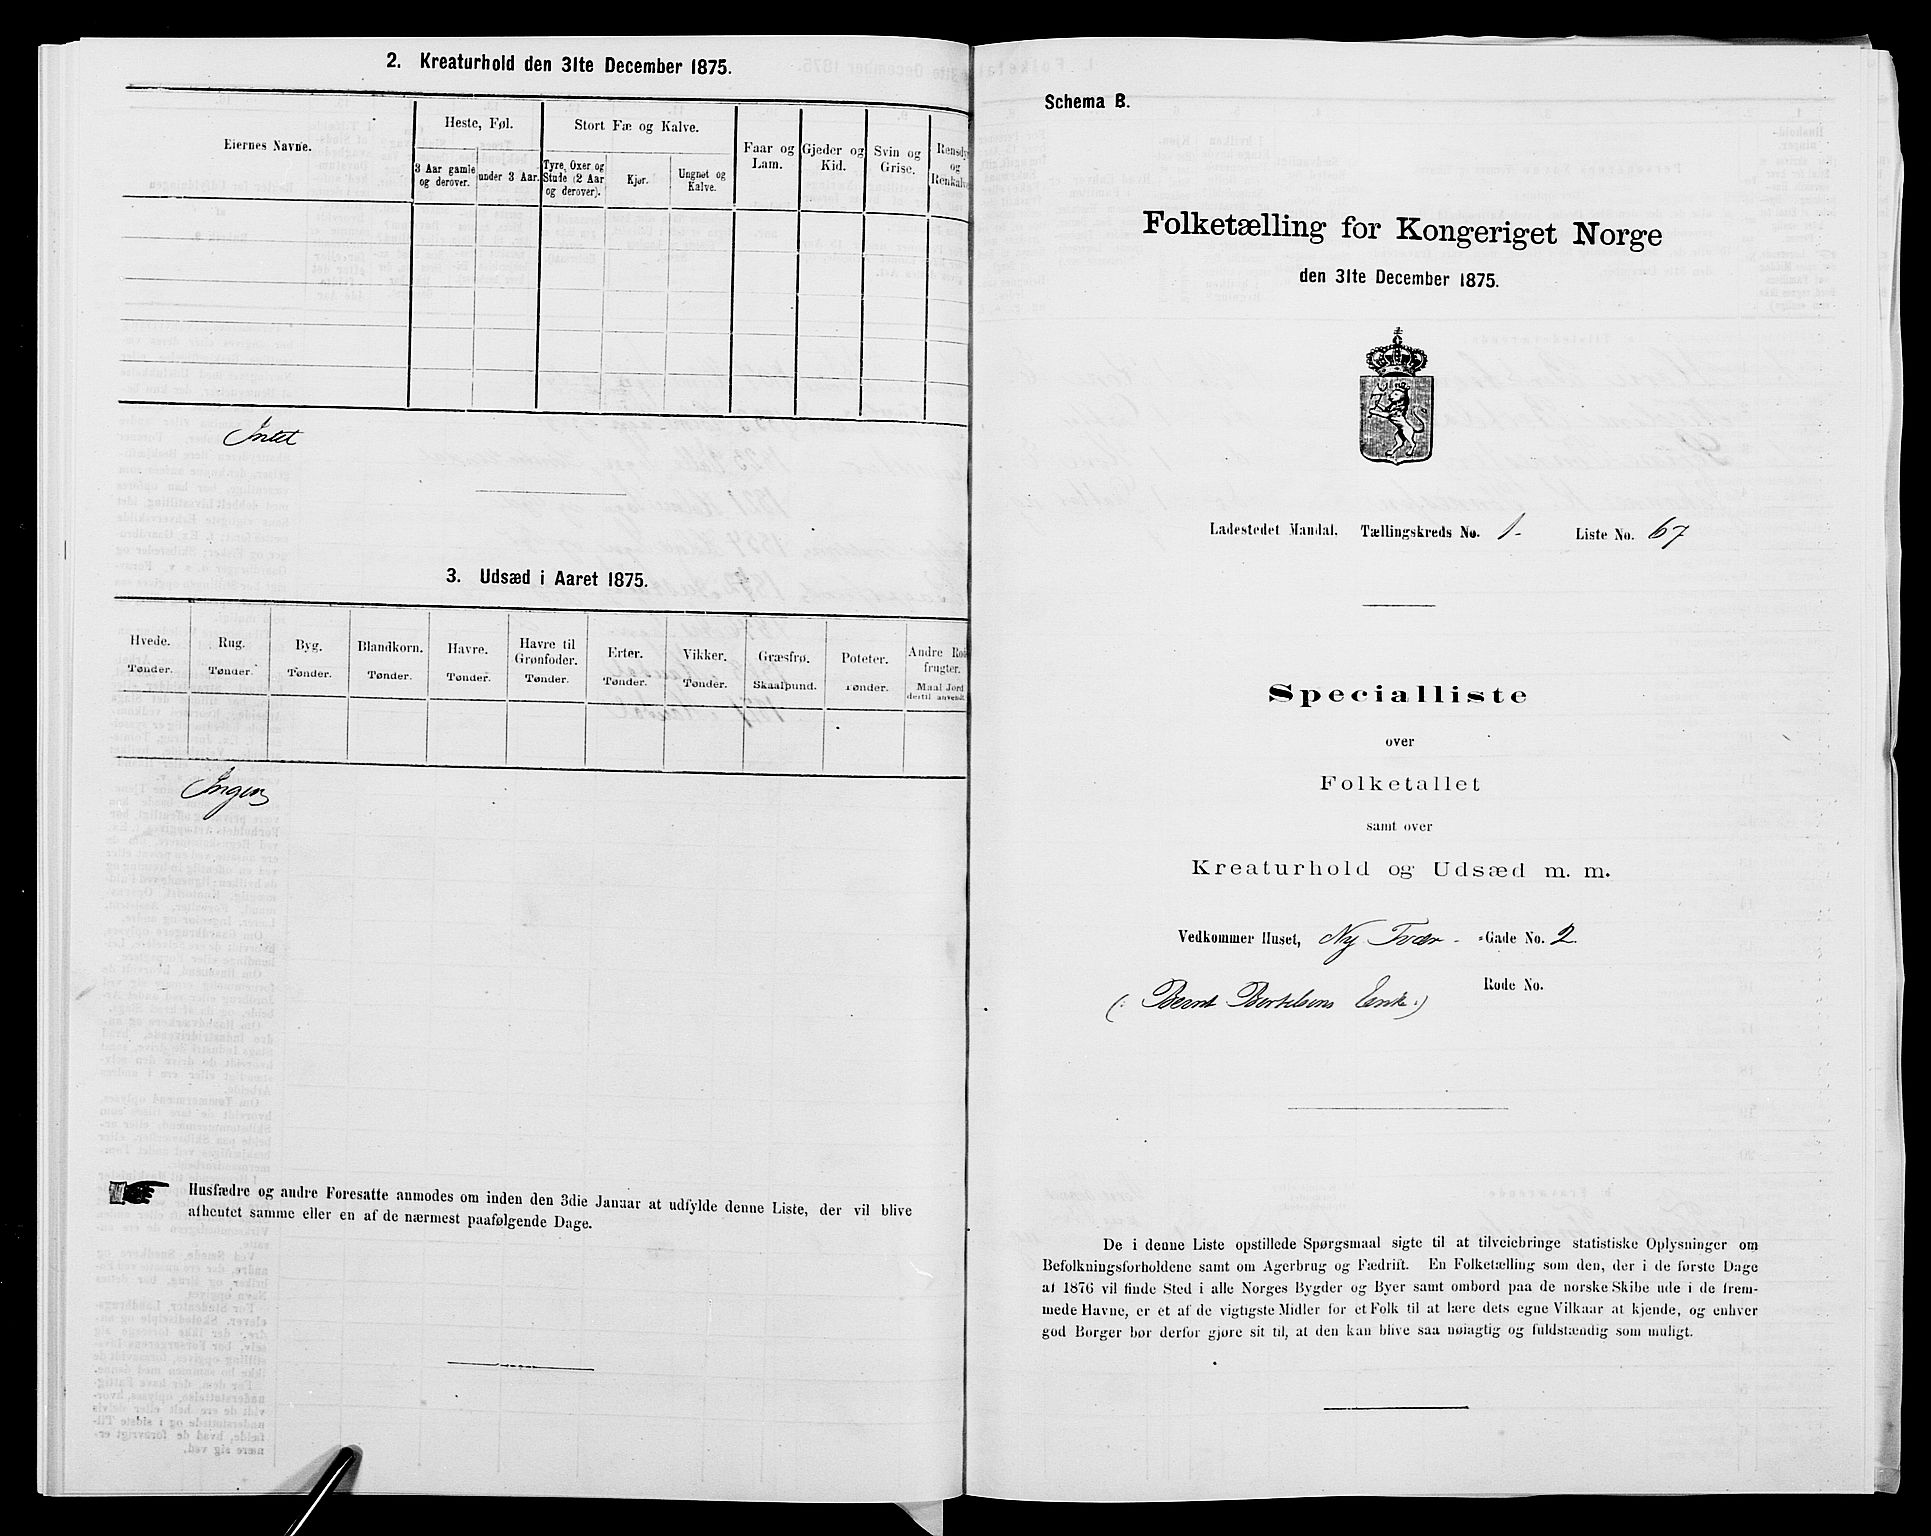 2. Kreaturhold den 31te December 1875.
Eiernes Navne.
Heste, Føl.
Stort Fæ og Kalve.
Faar og
Lam.
Gjeder og
Kid.
Svin og
Grise.
Rensdy
og
Renkalve
3 Aar gamle
og derover.
under 3 Aar.
Tyre, Oxer og
Stude (2 Aar
og derover).
Kjør.
Ungnøt og
Kalve.
Intet
3. Udsæd i Aaret 1875.
Hvede.
Rug.
Byg.
Blandkorn.
Havre.
Havre til
Grønfoder.
Erter.
Vikker.
Græsfrø.
Poteter.
Andre Rod-
frugter.
Tønder.
Tønder.
Tønder.
Tønder.
Tønder.
Tønder.
Tønder.
Tønder.
Skaalpund.
Tønder.
Maal Jord
dertil anvendt.
Ingen
Husfædre og andre Foresatte anmodes om inden den 3die Januar at udfylde denne Liste, der vil blive
afhentet samme eller en af de nærmest paafølgende Dage.
Schema B.
Folketælling for Kongeriget Norge
den 31te December 1875.
Ladestedet Mandal. Tællingskreds No. 1- Liste No. 67
Specialliste
over
Folketallet
samt over
Kreaturhold og Udsæd m. m.
Vedkommer Huset, Ny Tvær - -Gade No. 2.
Rode No.
(: Bernt Bertelsens Enke :)
De i denne Liste opstillede Spørgsmaal sigte til at tilveiebringe statistiske Oplysninger om
Befolkningsforholdene samt om Agerbrug og Fædrift. En Folketælling som den, der i de første Dage
af 1876 vil finde Sted i alle Norges Bygder og Byer samt ombord paa de norske Skibe ude i de frem-
mede Havne, er et af de vigtigste Midler for et Folk til at lære dets egne Vilkaar at kjende, og enhver
god Borger bør derfor gjøre sit til, at den kan blive saa nøiagtig og fuldstændig som muligt.